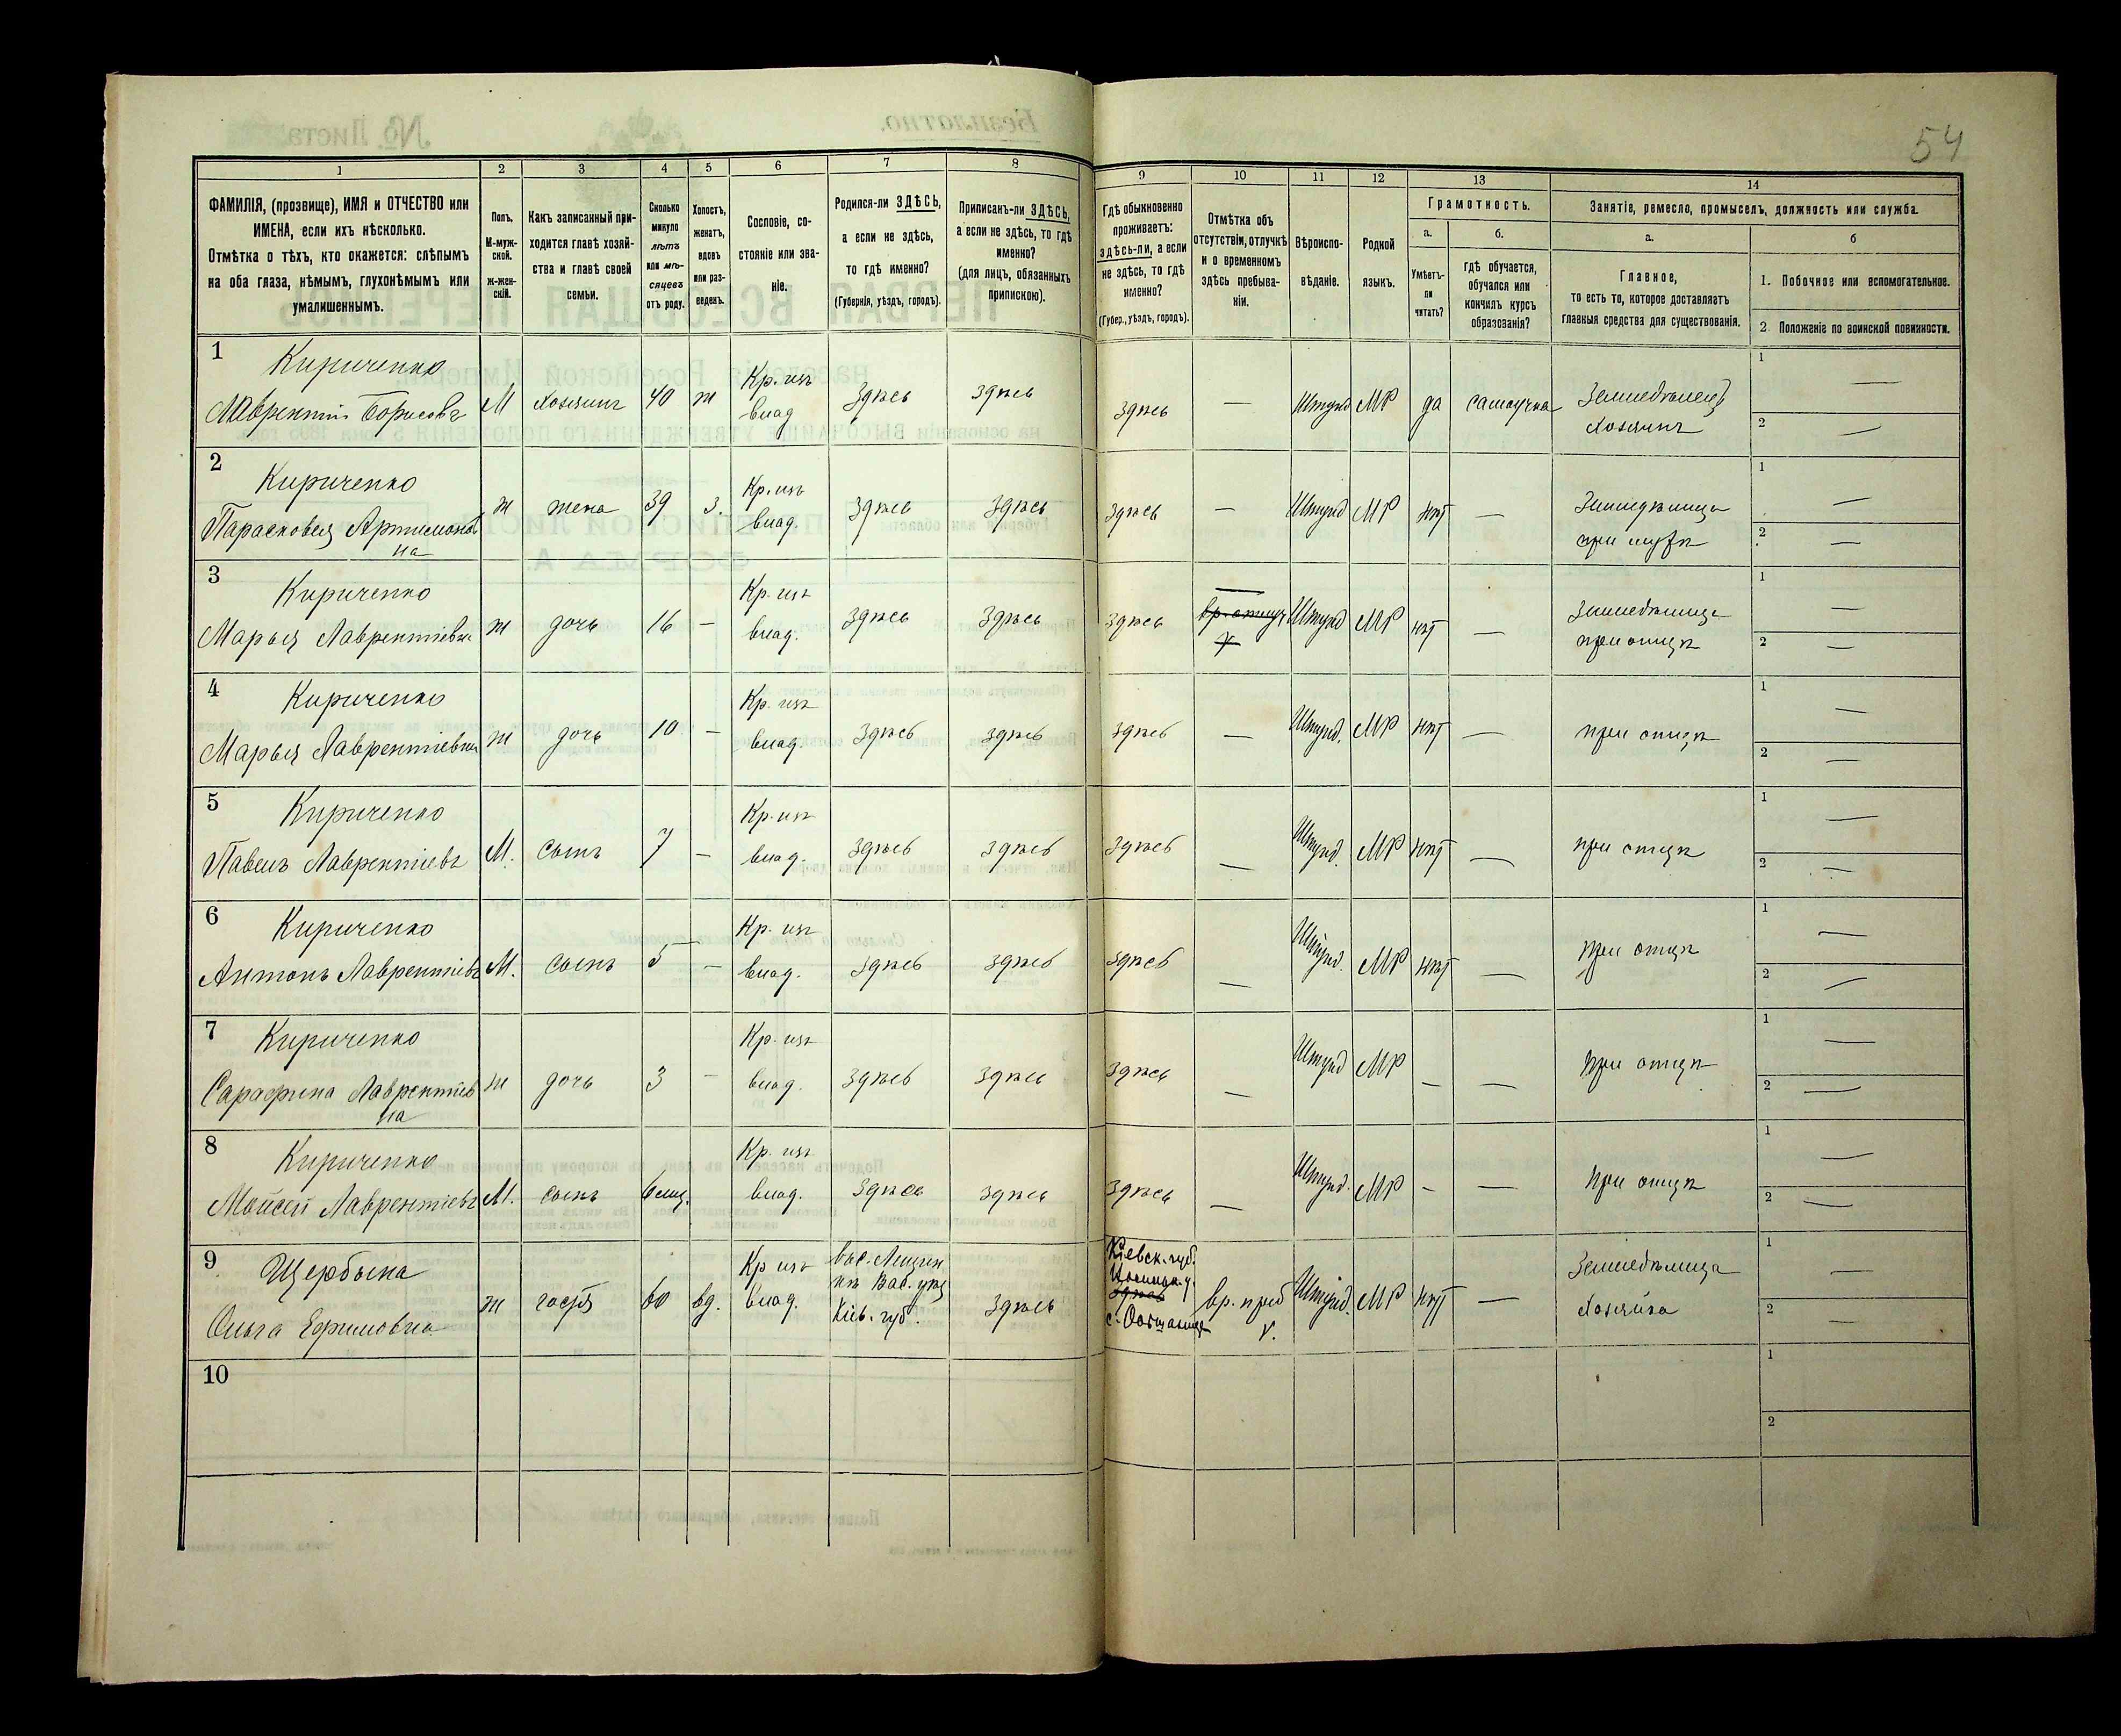 54
1
2
3
4
5
6
7
8
9
10
11
12
13
14
ФАМИЛІЯ, (прозвище), ИМЯ и ОТЧЕСТВО или
ИМЕНА, если ихъ нѣсколько.
Отмѣтка о тѣхъ, кто окажется: слѣпымъ
на оба глаза, нѣмымъ, глухонѣмымъ или
умалишеннымъ.
Полъ.
М-муж-
ской.
ж-жен-
скій.
Какъ записанный при-
ходится главѣ хозяй-
ства и главѣ своей
семьи.
Сколько
минуло
лѣтъ
или мѣ-
сяцевъ
отъ роду.
Холостъ,
женатъ,
вдовъ
или раз-
веденъ.
Сословіе, со-
стояніе или зва-
ніе.
Родился-ли ЗДѢСЬ,
а если не здѣсь,
то гдѣ именно?
(Губернія, уѣздъ, городъ).
Приписанъ-ли ЗДѢСЬ,
а если не здѣсь, то гдѣ
именно?
(для лицъ, обязанныхъ
припискою).
Гдѣ обыкновенно
проживаетъ:
здѣсь-ли, а если
не здѣсь, то гдѣ
именно?
(Губер., уѣздъ, городъ).
Отмѣтка объ
отсутствіи, отлучкѣ
и о временномъ
здѣсь пребыва-
ніи.
Вѣроиспо-
вѣданіе.
Родной
языкъ.
Грамотность.
а.
Умѣетъ-
ли
читать?
б.
гдѣ обучается,
обучался или
кончилъ курсъ
образованія?
Занятіе, ремесло, промыселъ, должность или служба.
а.
Главное,
то есть то, которое доставляетъ
главныя средства для существованія.
б
1. Побочное или вспомогательное.
2 Положеніе по воинской повинности.
1
Кириченко
Лаврентій Борисовъ
М
Хозяинъ
40
ж
Кр. изъ
влад
Здѣсь
здѣсь
здѣсь
—
Штунд
МР
да
самоучка
Земледѣлецъ
Хозяинъ
1 —
2 —
2
Кириченко
Парасковея Артимонов
на
ж
жена
39
з.
Кр. изъ
влад.
здѣсь
здѣсь
здѣсь
—
Штунд
МР
нѣт
—
Земледѣлица
при мужѣ
1 —
2 —
3
Кириченко
Марья Лаврентіевна
ж
дочь
16
—
Кр. изъ
влад.
здѣсь
здѣсь
здѣсь
Штунд
МР
нѣт
—
Земледѣлица
при отцѣ
1 —
2 —
4
Кириченко
Марья Лаврентіевна
ж
дочь
10
—
Кр. изъ
влад.
здѣсь
здѣсь
здѣсь
—
Штунд.
МР
нѣт
—
при отцѣ
1 —
2 —
5
Кириченко
Павелъ Лаврентіевъ
М.
сынъ
7
—
Кр. изъ
влад.
здѣсь
здѣсь
здѣсь
—
Штунд.
МР
нѣт
—
при отцѣ
1 —
2 —
6
Кириченко
Антонъ Лаврентіевъ
М.
сынъ
5
—
Кр. изъ
влад.
здѣсь
здѣсь
здѣсь
—
Штунд.
МР
нѣт
—
при отцѣ
1 —
2 —
7
Кириченко
Сарафина Лаврентіев
на
ж
дочь
3
—
Кр. изъ
влад.
здѣсь
здѣсь
здѣсь
—
Штунд
МР
—
—
при отцѣ
1 —
2 —
8
Кириченко
Мойсей Лаврентіевъ
М.
сынъ
6 мц.
Кр. изъ
влад.
здѣсь
здѣсь
здѣсь
—
Штунд.
МР
—
—
при отцѣ
1 —
2 —
9
Щербына
Ольга Ефимовна
ж
гостя
60
вд.
Кр изъ
влад.
Вас. уѣз
Кіев. губ.
здѣсь
Кіевск. губ.
здѣсь
вр. преб
Штунд.
МР
нѣт
—
Земледѣлица
Хозяйка
1 —
2 —
10
1
2